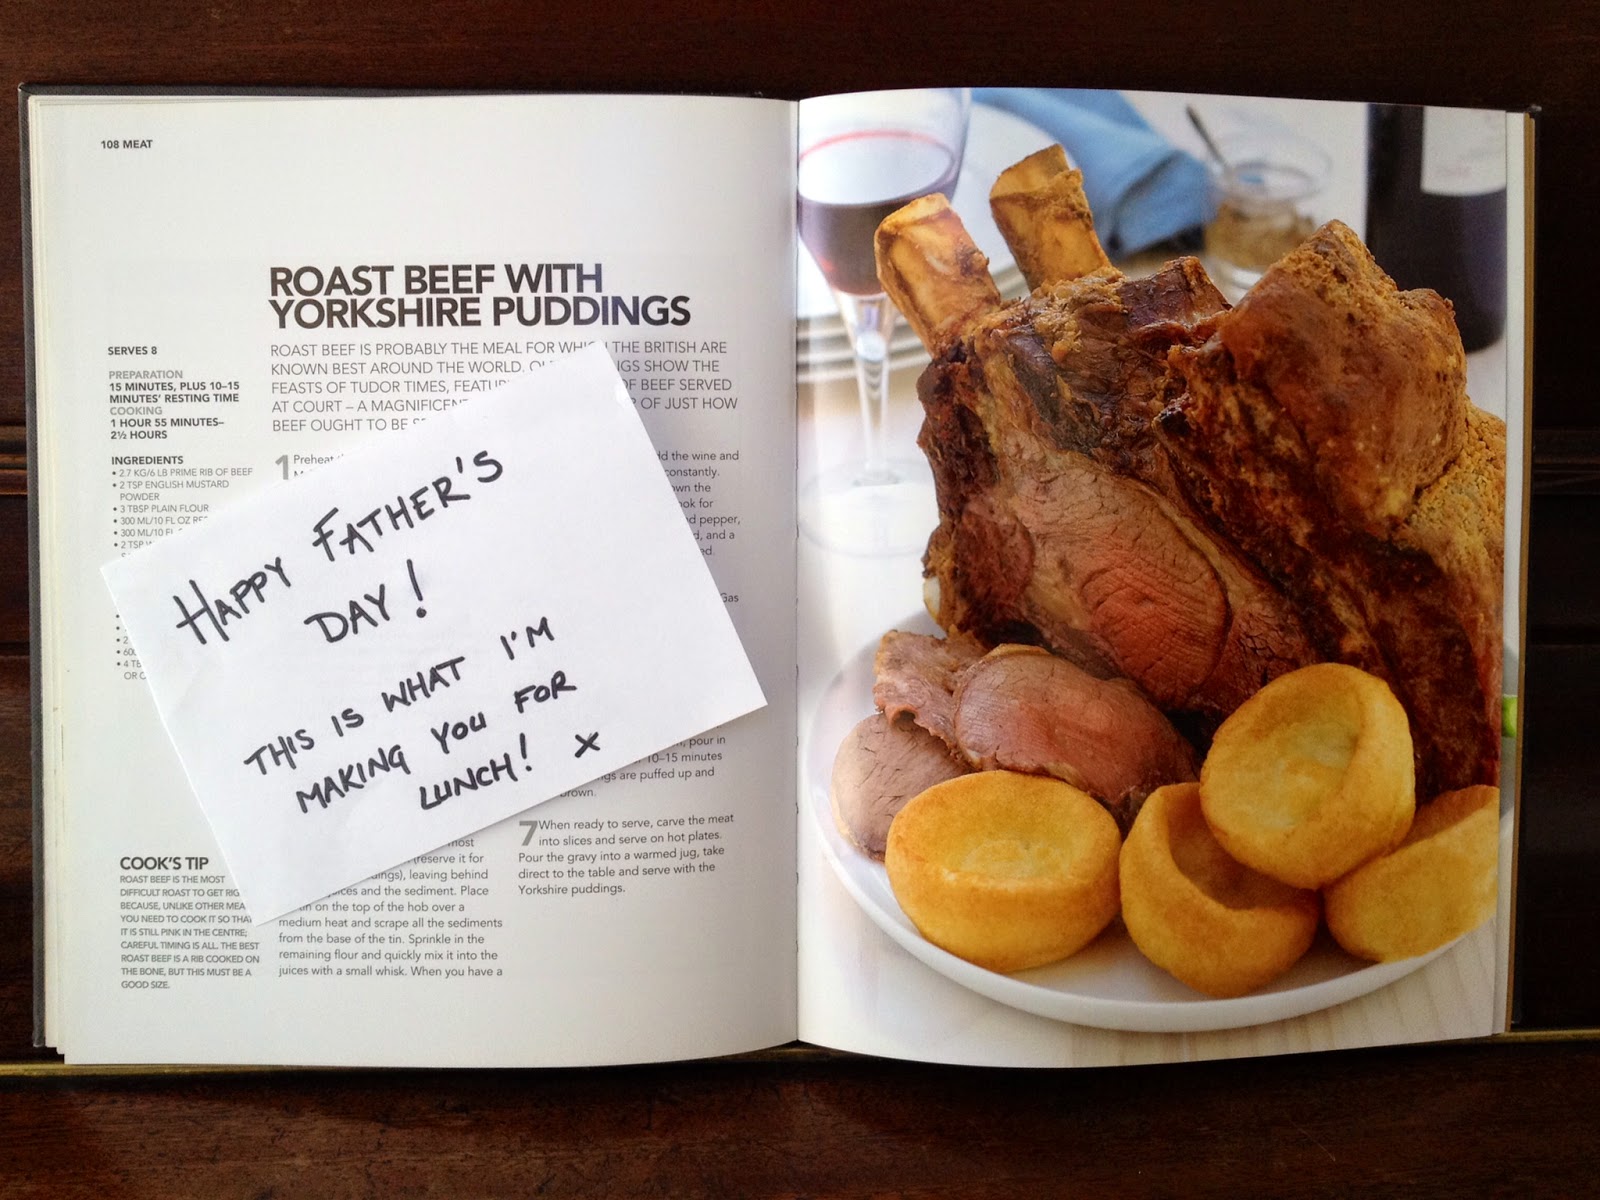 108 MEAT
ROAST BEEF WITH
YORKSHIRE PUDDINGS
ROAST BEEF IS PROBABLY THE MEAL FOR THE BRITISH ARE
KNOWN BEST AROUND THE WORLD. SHOW THE
FEASTS OF TUDOR TIMES, OF BEEF SERVED
AT COURT – A OF JUST HOW
BEEF OUGHT TO BE
SERVES 8
PREPARATION
15 MINUTES, PLUS 10–15
MINUTES' RESTING TIME
COOKING
1 HOUR 55 MINUTES–
2½ HOURS
INGREDIENTS
• 2.7 KG/6 LB PRIME RIB OF BEEF
• 2 TSP ENGLISH MUSTARD
POWDER
• 3 TBSP PLAIN FLOUR
• 300 ML/10 FL OZ
• 300 ML/10
• 2 TSP
OR
COOK'S TIP
ROAST BEEF IS THE MOST
DIFFICULT ROAST TO GET
BECAUSE, UNLIKE OTHER
YOU NEED TO COOK IT SO
IT IS STILL PINK IN THE CENTRE;
CAREFUL TIMING IS ALL. THE BEST
ROAST BEEF IS A RIB COOKED ON
THE BONE, BUT THIS MUST BE A
GOOD SIZE.
1 Preheat
HAPPY FATHER'S
DAY!
THIS IS WHAT I'M
MAKING YOU FOR
LUNCH! X
most
(reserve it for
leaving behind
and the sediment. Place
on the top of the hob over a
medium heat and scrape all the sediments
from the base of the tin. Sprinkle in the
remaining flour and quickly mix it into the
juices with a small whisk. When you have a
the wine and
constantly.
the
for
pepper,
and a
Gas
pour in
10–15 minutes
are puffed up and
7 When ready to serve, carve the meat
into slices and serve on hot plates.
Pour the gravy into a warmed jug, take
direct to the table and serve with the
Yorkshire puddings.